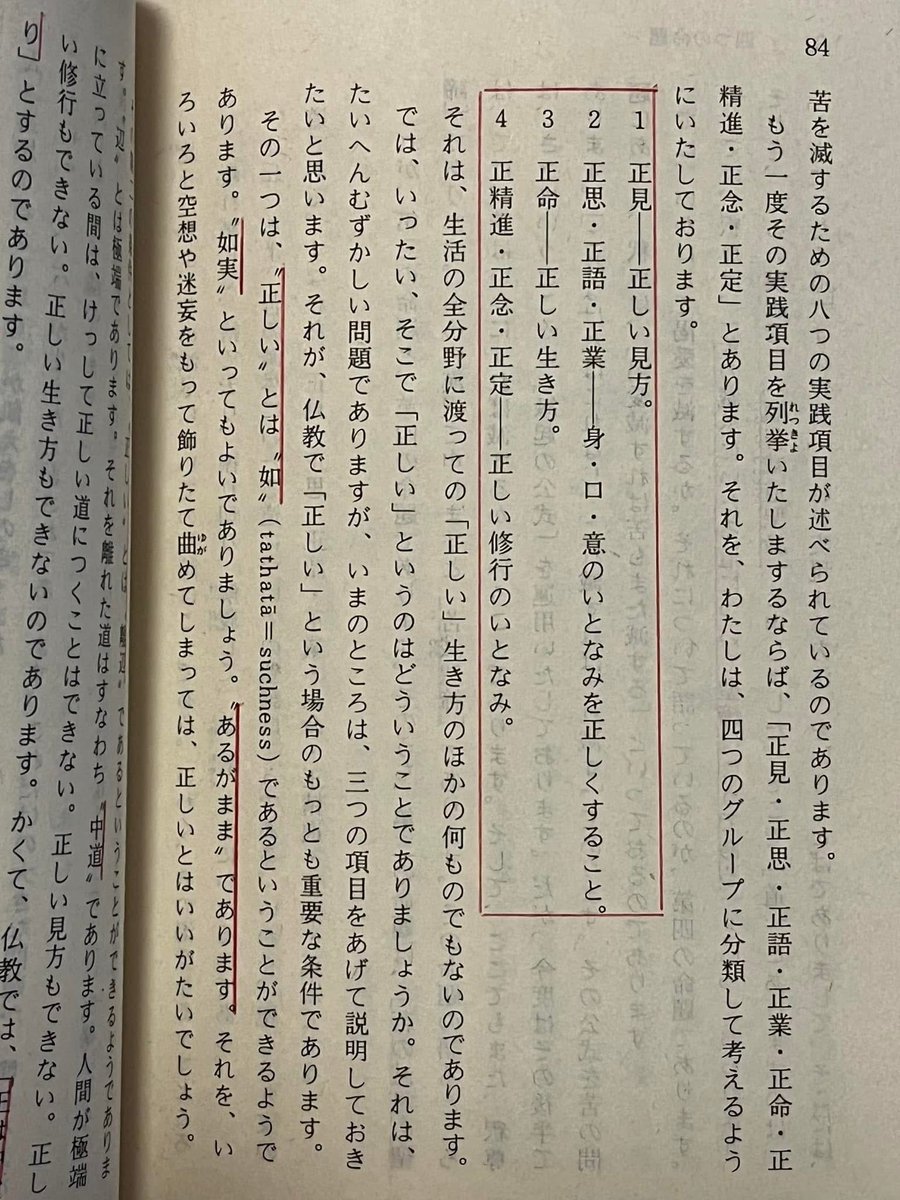 84
苦を滅するための八つの実践項目が述べられているのであります。
もう一度その実践項目を列挙いたしまするならば、「正見・正思・正語・正業・正命・正
れっきよ
精進・正念・正定」とあります。それを、わたしは、四つのグループに分類して考えるよう
にいたしております。
1 正見――正しい見方。
2 正思・正語・正業――身・口・意のいとなみを正しくすること。
3 正命――正しい生き方。
4 正精進・正念・正定――正しい修行のいとなみ。
それは、生活の全分野に渡っての「正しい」生き方のほかの何ものでもないのであります。
では、いったい、そこで「正しい」というのはどういうことでありましょうか。それは、
たいへんむずかしい問題でありますが、いまのところは、三つの項目をあげて説明しておき
たいと思います。それが、仏教で「正しい」という場合のもっとも重要な条件であります。
その一つは、〝正しい〟とは〝如〟(tathatā＝suchness)であるということができるようで
あります。〝如実〟といってもよいでありましょう。〝あるがまま〟であります。それを、い
ろいろと空想や迷妄をもって飾りたて曲めてしまっては、正しいとはいいがたいでしょう。
ゆが
〝正しい〟とは〝離辺〟であるということができるようでありま
す。〝辺〟とは極端であります。それを離れた道はすなわち〝中道〟であります。人間が極端
に立っている間は、けっして正しい道につくことはできない。正しい見方もできない。正し
い修行もできない。正しい生き方もできないのであります。かくて、仏教では、
り」とするのであります。